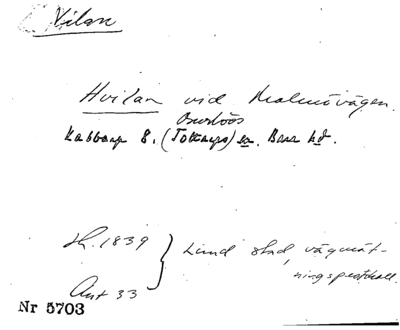 Vilan
Hvilan vid Malmövägen.
Burlövs
Kabbarp 8. (Tottarps) sn. Bara hd.
Sk. 1839 } Lund stad, vägmät-
ningsprotokoll.
Akt 33
Nr 5703